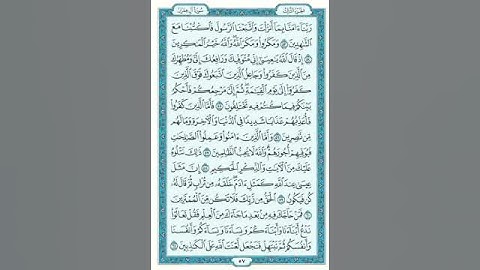 الجزء الثالث
سورة آل عمران
رَبَّنَا ءَامَنَّا بِمَا أَنزَلْتَ وَاتَّبَعْنَا الرَّسُولَ فَاكْتُبْنَا مَعَ
الشَّٰهِدِينَ ٥٣ وَمَكَرُوا وَمَكَرَ اللَّهُ وَاللَّهُ خَيْرُ الْمَٰكِرِينَ
٥٤ إِذْ قَالَ اللَّهُ يَٰعِيسَىٰ إِنِّي مُتَوَفِّيكَ وَرَافِعُكَ إِلَيَّ وَمُطَهِّرُكَ
مِنَ الَّذِينَ كَفَرُوا وَجَاعِلُ الَّذِينَ اتَّبَعُوكَ فَوْقَ الَّذِينَ
كَفَرُوا إِلَىٰ يَوْمِ الْقِيَٰمَةِ ثُمَّ إِلَيَّ مَرْجِعُكُمْ فَأَحْكُمُ
بَيْنَكُمْ فِيمَا كُنتُمْ فِيهِ تَخْتَلِفُونَ ٥٥ فَأَمَّا الَّذِينَ كَفَرُوا
فَأُعَذِّبُهُمْ عَذَابًا شَدِيدًا فِي الدُّنْيَا وَالْءَاخِرَةِ وَمَا لَهُم
مِّن نَّٰصِرِينَ ٥٦ وَأَمَّا الَّذِينَ ءَامَنُوا وَعَمِلُوا الصَّٰلِحَٰتِ
فَيُوَفِّيهِمْ أُجُورَهُمْ وَاللَّهُ لَا يُحِبُّ الظَّٰلِمِينَ ٥٧ ذَٰلِكَ نَتْلُوهُ
عَلَيْكَ مِنَ الْءَايَٰتِ وَالذِّكْرِ الْحَكِيمِ ٥٨ إِنَّ مَثَلَ
عِيسَىٰ عِندَ اللَّهِ كَمَثَلِ ءَادَمَ خَلَقَهُ مِن تُرَابٍ ثُمَّ قَالَ لَهُ
كُن فَيَكُونُ ٥٩ الْحَقُّ مِن رَّبِّكَ فَلَا تَكُن مِّنَ الْمُمْتَرِينَ
٦٠ فَمَنْ حَاجَّكَ فِيهِ مِن بَعْدِ مَا جَاءَكَ مِنَ الْعِلْمِ فَقُلْ تَعَالَوْا
نَدْعُ أَبْنَاءَنَا وَأَبْنَاءَكُمْ وَنِسَاءَنَا وَنِسَاءَكُمْ وَأَنفُسَنَا
وَأَنفُسَكُمْ ثُمَّ نَبْتَهِلْ فَنَجْعَل لَّعْنَتَ اللَّهِ عَلَى الْكَٰذِبِينَ ٦١
٥٧